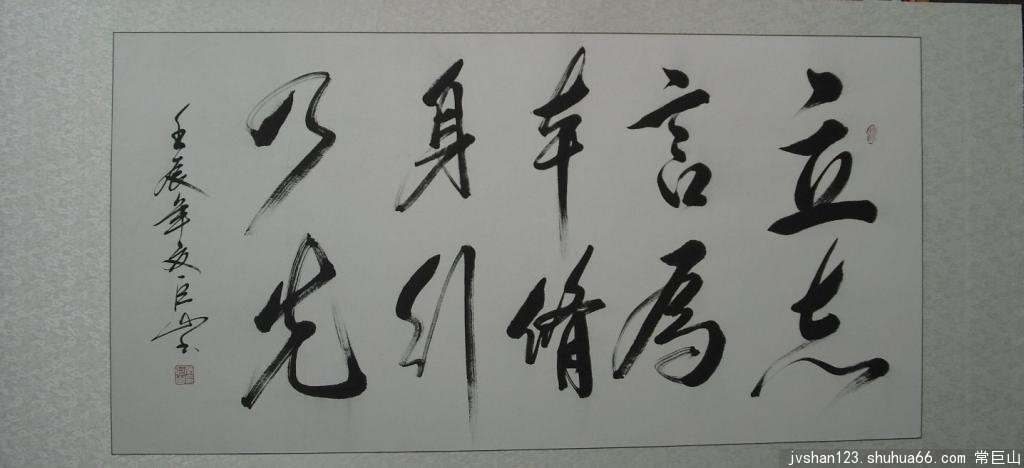 立志
言為
本脩
身行
乃先
壬辰年夏巨山
jvshan123.shuhua66.com 常巨山